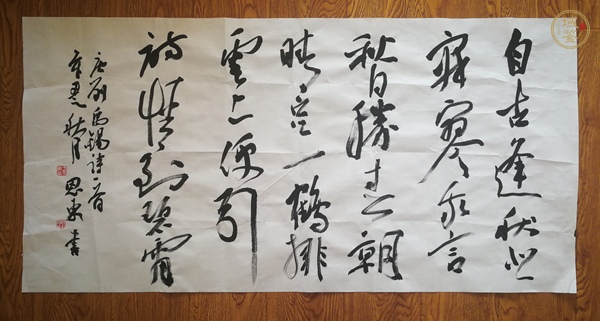 自古逢秋悲
寂寥我言
秋日勝春朝
晴空一鶴排
雲上便引
詩情到碧霄
唐劉禹錫詩一首
秋月 思東書